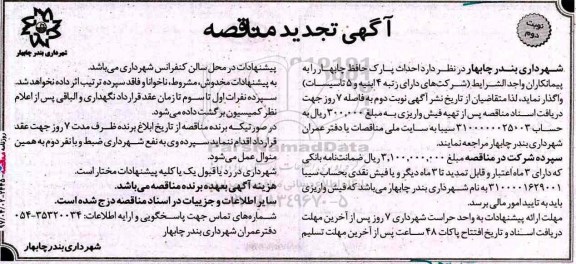 آگهی تجدید مناقصه
نوبت دوم
شهرداری بندر چابهار
شهرداری بندر چابهار در نظر دارد احداث پارک حافظ چابهار را به
پیمانکاران واجد الشرایط (شرکت‌های دارای رتبه ۴ ابنیه و ۵ تاسیسات)
واگذار نماید، لذا متقاضیان از تاریخ نشر آگهی نوبت دوم به فاصله ۷ روز جهت
دریافت اسناد مناقصه پس از تهیه فیش واریزی به مبلغ ۳۰۰,۰۰۰ ریال به
حساب ۳۱۰۰۰۰۰۰۳۵۰۰۳ سیبا به سایت ملی مناقصات یا دفتر عمران
شهرداری بندر چابهار مراجعه نمایند.
سپرده شرکت در مناقصه مبلغ ۳,۱۰۰,۰۰۰,۰۰۰ ریال ضمانتنامه بانکی
که دارای ۳ ماه اعتبار و قابل تمدید تا ۳ ماه دیگر و یا فیش نقدی بحساب سیبا
۳۱۰۰۰۰۱۶۲۹۰۰۱ به نام شهرداری بندر چابهار می‌باشد که فیش واریزی
باید به تایید امور مالی برسد.
مهلت ارائه پیشنهادات به واحد حراست شهرداری ۷ روز پس از آخرین مهلت
دریافت اسناد و تاریخ افتتاح پاکات ۴۸ ساعت پس از آخرین مهلت تسلیم
پیشنهادات در محل سالن کنفرانس شهرداری می‌باشد.
به پیشنهادات مخدوش، مشروط، ناخوانا و فاقد سپرده ترتیب اثر داده نخواهد شد.
سپرده نفرات اول تا سوم تا زمان عقد قرارداد نگهداری و الباقی پس از اعلام
نظر کمیسیون برگشت داده می‌شود.
در صورتیکه برنده مناقصه از تاریخ ابلاغ برنده ظرف مدت ۷ روز جهت عقد
قرارداد اقدام ننماید سپرده وی به نفع شهرداری ضبط و با نفر دوم به همین
منوال عمل می‌شود.
شهرداری در رد یا قبول یک یا کلیه پیشنهادات مختار است.
هزینه آگهی بعهده برنده مناقصه می‌باشد.
سایر اطلاعات و جزییات در اسناد مناقصه درج شده است.
شماره‌های تماس جهت پاسخگویی و ارایه اطلاعات: ۳۵۳۲۰۰۳۴-۰۵۴
دفتر عمران شهرداری بندر چابهار
شهرداری بندر چابهار